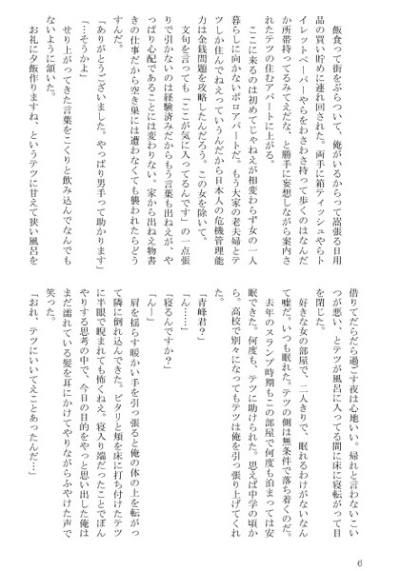 飯食って街をぶらついて、俺がいるからって嵩張る日用
品の買い貯めに連れ回された。両手に箱ティッシュやらト
イレットペーパーやらをわさわさ持って歩くのはなんだ
か所帯持ってるみてえだな、と勝手に妄想しながら案内さ
れたテツの住むアパートに上がる。
ここに来るのは初めてじゃねえが相変わらず女の一人
暮らしに向かないボロアパートだ。もう大家の老夫婦とテ
ツしか住んでねえっていうんだから日本人の危機管理能
力は金銭問題を攻略したんだろう。この女を除いて。
文句を言っても「ここが気に入ってるんです」の一点張
りで引かないのは経験済みだからもう言葉も出ねえが、や
っぱり心配であることには変わりない。家から出ねえ物書
きの仕事だから空き巣には遭わなくても襲われたらどう
すんだ。
「ありがとうございました。やっぱり男手って助かります」
「…そうかよ」
せり上がってきた言葉をこくりと飲み込んでなんでも
ないように頷いた。
お礼に夕飯作りますね、というテツに甘えて狭い風呂を
借りてだらだら過ごす夜は心地いい。帰れと言わないこい
つが悪い、とテツが風呂に入ってる間に床に寝転がって目
を閉じた。
好きな女の部屋で、二人きりで、眠れるわけがないなん
て嘘だ。いつも眠れた。テツの側は無条件で落ち着くのだ。
去年のスランプ時期もこの部屋で何度も泊まっては安
眠できた。何度も、テツに助けられた。思えば中学の頃か
ら。高校で別々になってもテツは俺を引っ張り上げてくれ
「青峰君？」
「ん……」
「寝るんですか？」
「んー」
肩を揺らす暖かい手を引っ張ると俺の体の上を転がっ
て隣に倒れ込んできた。ピタリと頬を床に打ち付けたテツ
に半眼で睨まれても怖くねえ。寝入り端だったことでぼん
やりする思考の中で、今日の目的をやっと思い出した俺は
まだ濡れている髪を耳にかけてやりながらふやけた声で
笑った。
「おれ、テツにいいてえことあったんだ…」
6